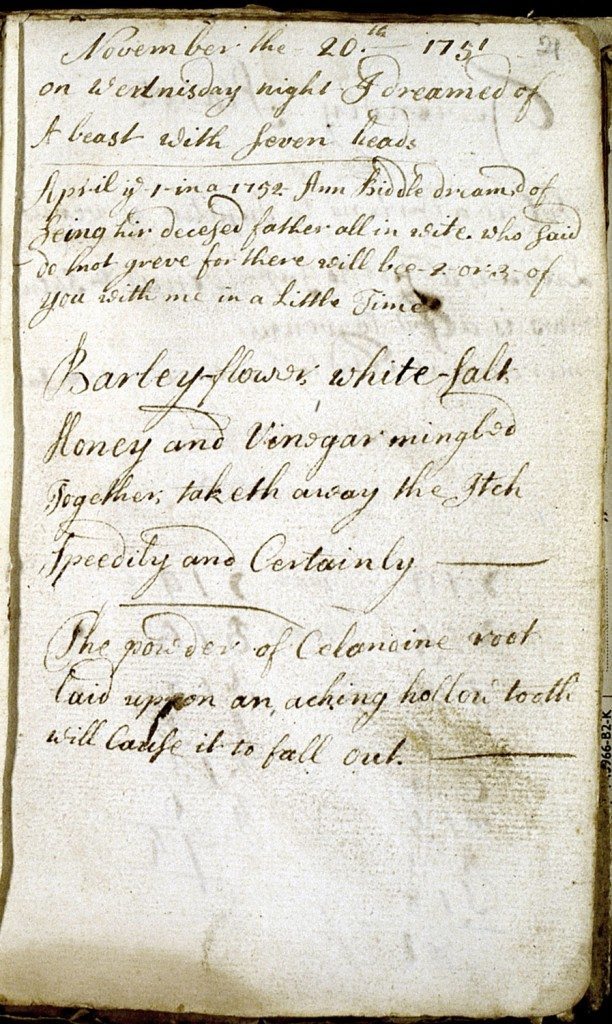 November the 20.th 1751
21
on Wednisday night I dreamed of
A beast with seven heads
April ye 1 in a 1752 Ann Biddle dreamed of
Seing hir decesed father all in wite. who said
do not greve for there will bee 2 or 3 of
you with me in a Little Time
Barley-flower, white-salt
Honey and Vinegar mingled
Together, taketh away the Itch
Speedily and Certainly
The powder of Celandine root
laid uppon an aching hollow tooth
will Cause it to fall out.
966-B2-K